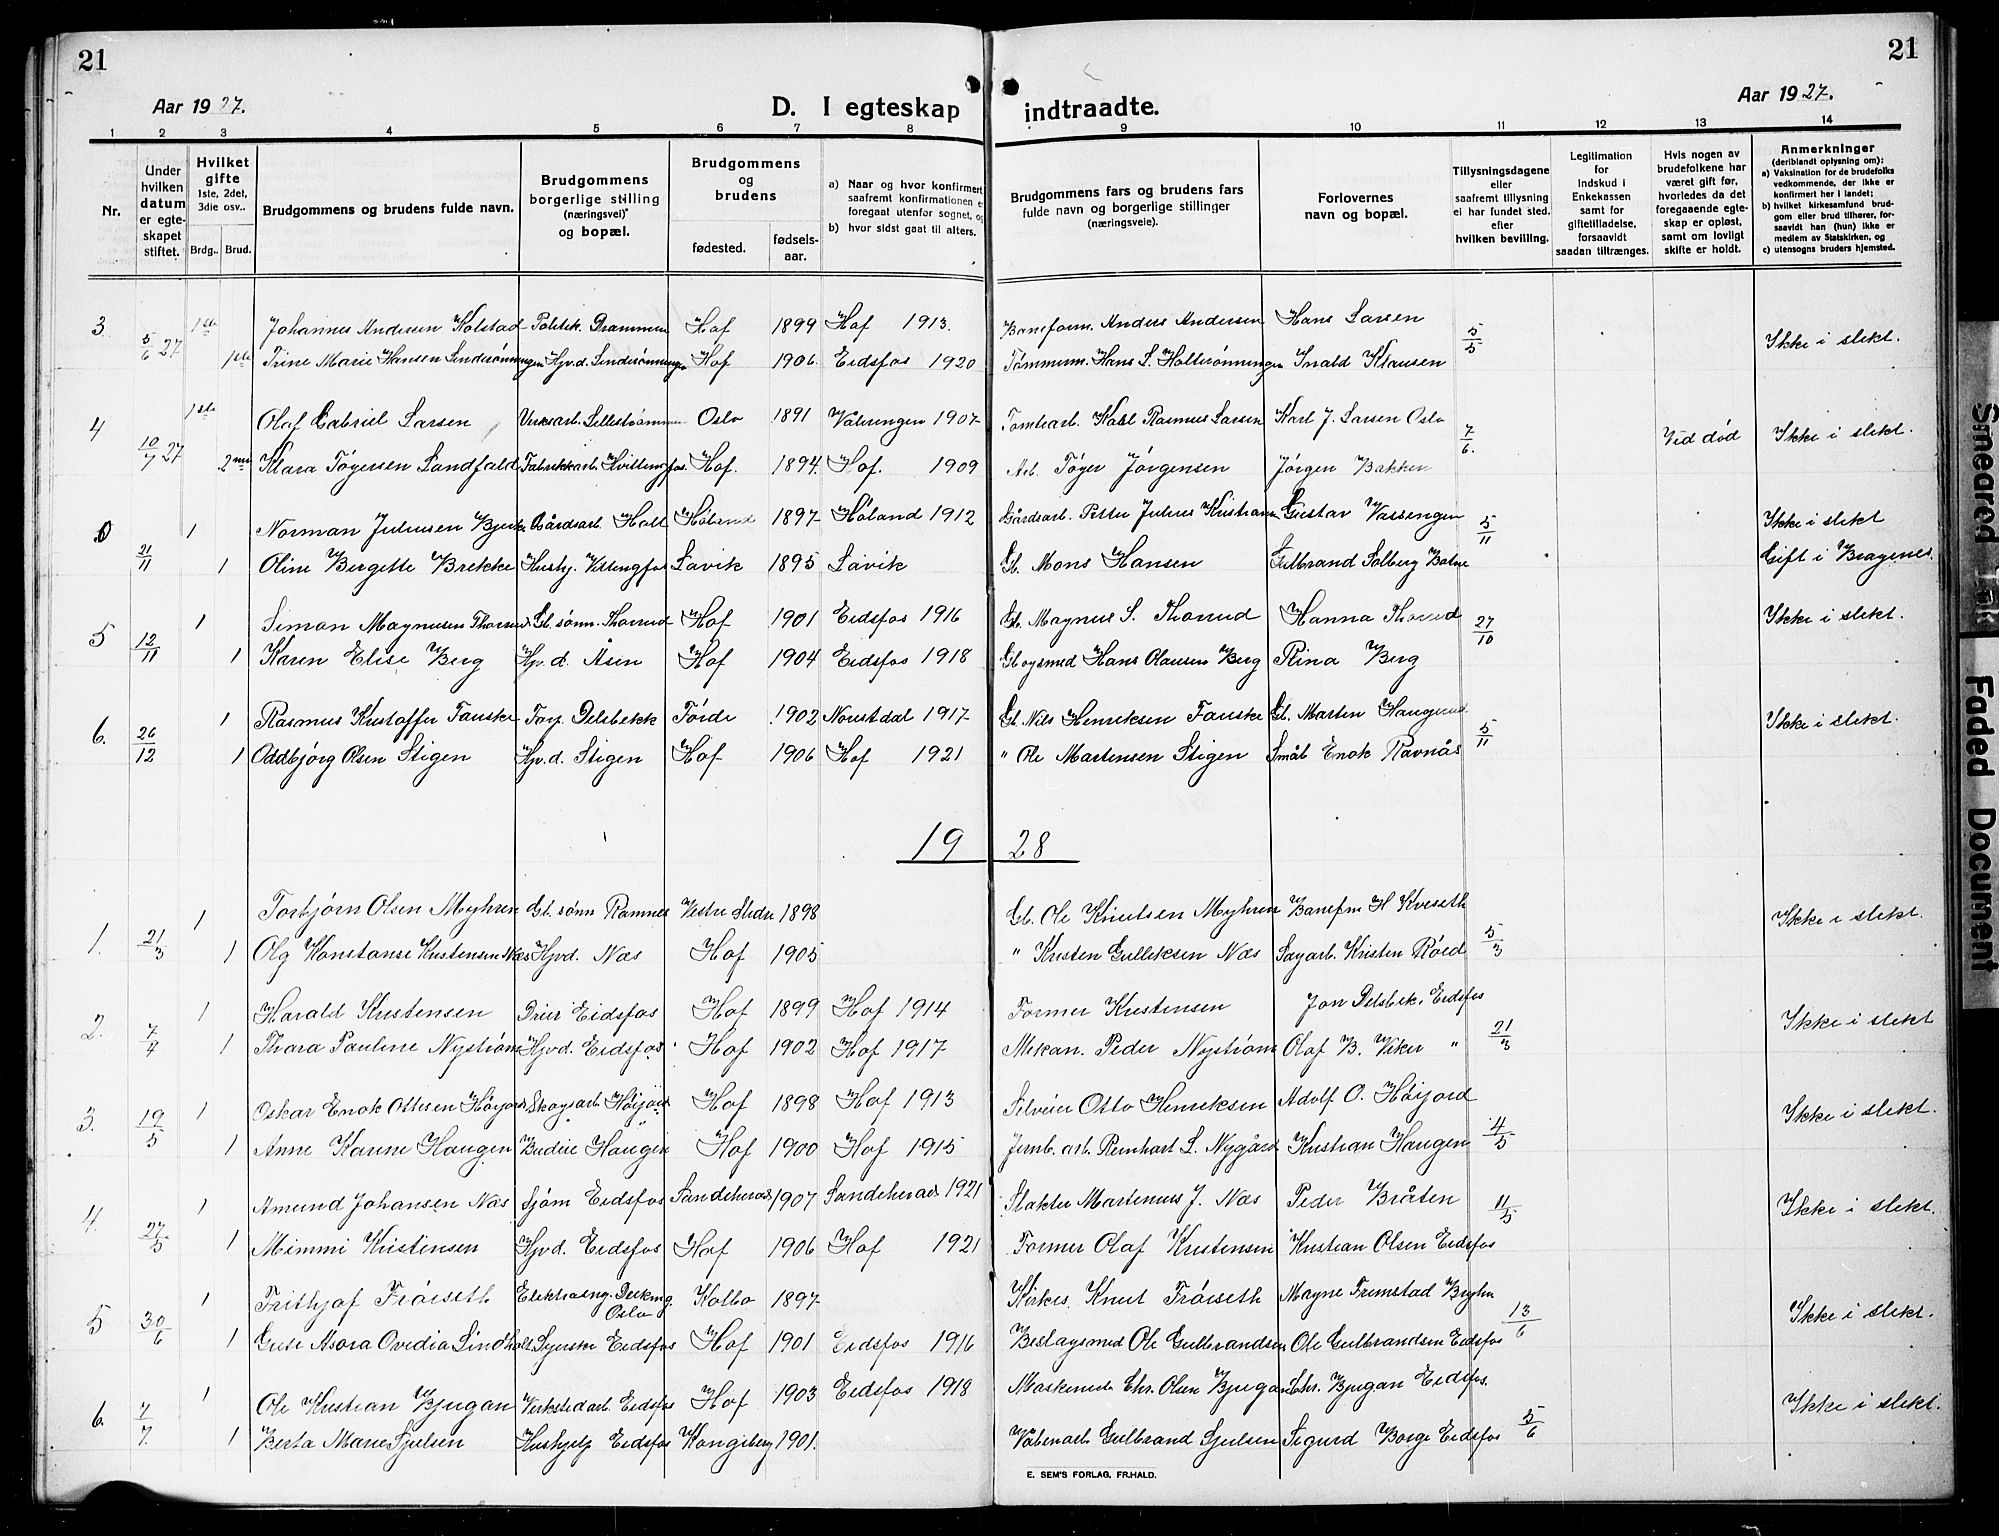 21
21
Aar 1927.
D. I egteskap indtraadte.
Aar 1927.
1 2 3 4 5 6 7 8 9 10 11 12 13 14
Nr.
Under hvilken datum er egteskapet stiftet.
Hvilket gifte 1ste, 2det, 3die osv..
Brdg.. Brud.
Brudgommens og brudens fulde navn.
Brudgommens borgerlige stilling (næringsvei) og bopæl.
Brudgommens og brudens
fødested. fødsels-aar.
a) Naar og hvor konfirmert saafremt konfirmationen e foregaat utenfor sognet, og
b) hvor sidst gaat til alters.
Brudgommens fars og brudens fars fulde navn og borgerlige stillinger (næringsveie).
Forlovernes navn og bopæl.
Tillysningsdagene eller saafremt tillysning ei har fundet sted. efter hvilken bevilling.
Legitimation for indskud i Enkekassen samt for giftetilladelse, forsaavidt saadan tiltrænges.
Hvis nogen av brudefolkene har været gift før, hvorledes da det foregaaende egteskap er opløst, samt om lovligt skifte er holdt.
Anmerkninger (deriblandt oplysning om):
a) Vaksination for de brudefolks vedkommende, der ikke er konfirmert her i landet;
b) hvilket kirkesamfund brudgom eller brud tilhører, forsaavidt han (hun) ikke er medlem av Statskirken, og
c) utensogns bruders hjemsted.
3 5/6 27 1ste Johannes Andersen Kolstad Politik. Drammen Hof 1899 Hof 1913. Baneform. Anders Andersen Hans Larsen 5/5 Ikke i slekt.
1ste Trine Marie Hansen Sinderønningen Hjv.d. Sinderønningen Hof 1906. Eidsfos 1920 Tømmerm. Hans L. Holterønningen Inald Klausen
4 10/7 27 1ste Olaf Gabriel Larsen Verksarb. Lillestrømmen Oslo 1891 Vålerengen 1907 Tomtearb. Karl Rasmus Larsen Karl J. Larsen Oslo 7/6. Ved død Ikke i slekt.
2nen Klara Tøgersen Sandfald Fabrikkarb. Hvittingfos Hof. 1894. Hof. 1909 Arb. Tøger Jørgensen Jørgen Bakken
0 21/11 1 Norman Juliusen Bjerke Gårdsarb. Holt Høland 1897 Høland 1912 Gårdsarb. Petter Julius Kristians. Gustav Vassengen 5/11 Ikke i slekt
1 Oline Bergette Brekke Hushj. Vittingfos Lavik 1895 Lavik Gb. Mons Hansen Gulbrand Solberg Botne Gift i Bragenes.
5 12/11 1 Simon Magnusen Thorrud Gb. sønn. Thorrud Hof 1901 Eidsfos 1916 Gb. Magnus S. Thorrud Hanna Thorrud 27/10 Ikke i slekt.
1 Karen Elise Berg Hjv. d. Åsen Hof 1904 Eidsfos 1918 Gb. ogsmed Hans Olausen Berg Rina Berg
6. 26/12 1 Rasmus Kristoffer Fauske Forp. Delsbekk Førde 1902 Noustdal 1917 Gb. Nils Henriksen Fauske Gb. Marten Haugerud 5/11 Ikke i slekt.
1 Oddbjørg Olsen Stigen Hjv.d. Stigen Hof 1906 Hof 1921 " Ole Martensen Stigen Småb Enok Ravnås
19 28
1. 21/3 1 Torbjørn Olsen Myhren Gb. sønn Ramnes Vestre Slidre 1898 Gb. Ole Knutsen Myhren Banefm H Kveseth 5/3 Ikke i slekt.
1 Olg Konstanse Kristensen Næs Hjvd. Næs Hof 1905 " Kristen Gulliksen Næs Sagarb. Kristen Røed
2. 7/4 1 Harald Kristensen Drier Eidsfos Hof 1899 Hof 1914 Former Kristensen Jon Delsbek. Eidsfos 21/3 Ikke i slekt
1 Thora Pauline Nystrøm Hjvd. Eidsfos. Hof 1902 Hof 1917 Mekan. Peder Nystrøm Olaf B. Viker "
3. 19/5 1 Oskar Enok Ottesen Høijord Skogsarb. Høijord Hof 1898 Hof 1913 Selveier Otto Henriksen Adolf O. Høijord 4/5 Ikke i slekt.
1 Anne Karine Haugen Budeie Haugen Hof 1900 Hof 1915 Jernb. arb. Reinhart L. Nygård Kristian Haugen
4. 27/5 1 Amund Johansen Næs Sjøm Eidsfos Sandeherad 1907 Sandeherad 1921 Slakter Martenius J. Næs Peder Bråten 11/5 Ikke i slekt.
1 Mimmi Kristensen Hjvd. Eidsfos Hof 1906 Hof 1921 Former Olaf Kristensen Kristian Olsen Eidsfos
5 30/6 1 Frithjof Frøiseth Oslo Kolbo 1897 Kirkes. Knut Frøiseth Magne Fremstad Bryhn 13/6 Ikke i slekt.
1 Asora Ovidia Lindholt Syerske Eidsfos Hof 1901 Eidsfos 1916 Beslagsmed Ole Gulbrandsen Ole Gulbrandsen Eidsfos
6. 7/7. 1 Ole Kristian Bjugan Verkstedarb. Eidsfos Hof 1903 Eidsfos 1918 Chr. Olsen Bjugan Chr. Bjugan Eidsfos. 5/6 Ikke i slekt.
1 Berta Marie Sjulsen Hushjelp Eidsfos Kongsberg 1901. Våbenarb Gulbrand Sjulsen Sigurd Borge Eidsfos
E. SEM'S FORLAG, FR.HALD.
Smeared Ink
Faded Document